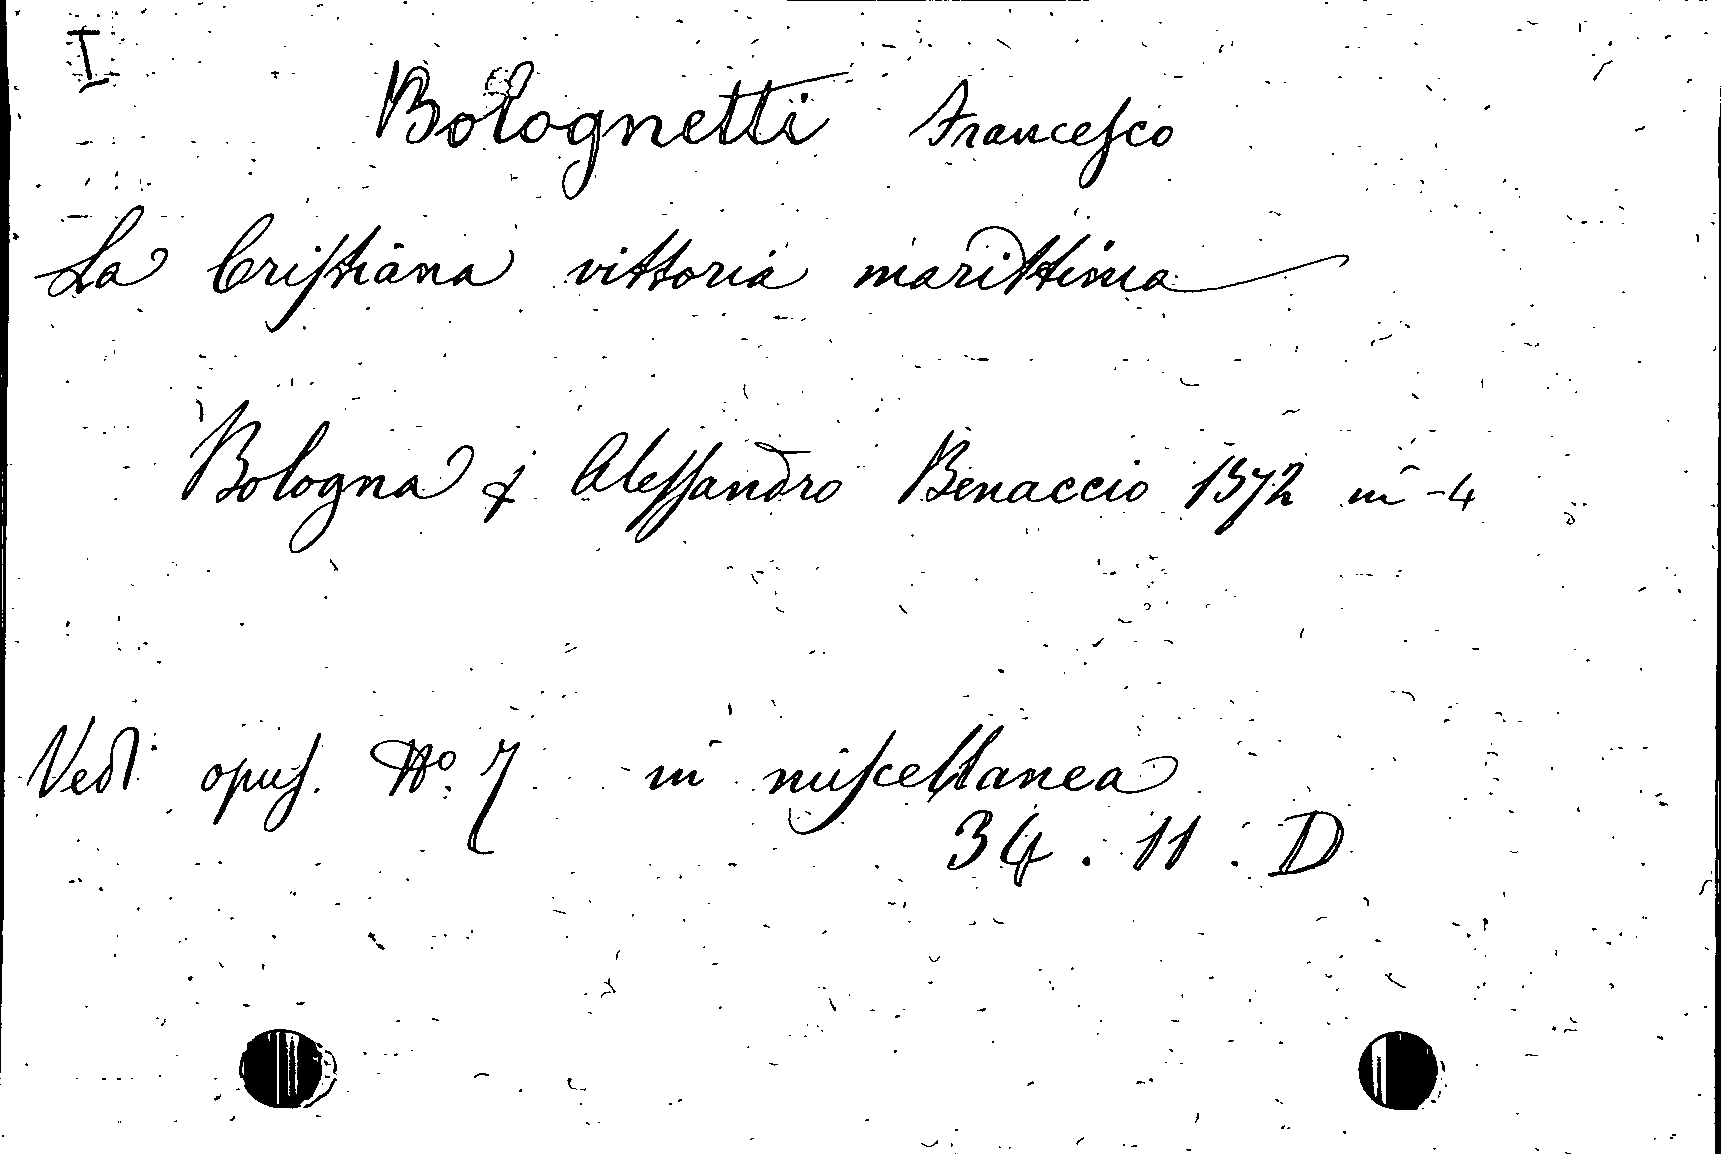 I
Bolognetti Francesco
La Cristiana vittoria marittima
Bologna p Alessandro Benaccio 1572 in-4
Vedi opus. No. 7 in miscellanea
34. 11. D